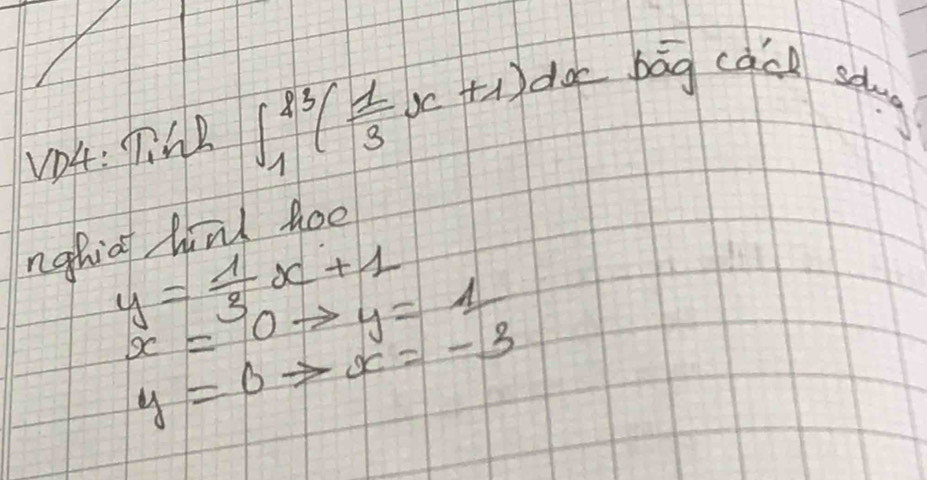 VD4: Tính ∫₁³ (1/3 x + 1) dx bằg cách sdụg
nghĩa hình học
y = 1/3 x + 1
x = 0 → y = 1
y = 0 → x = -3